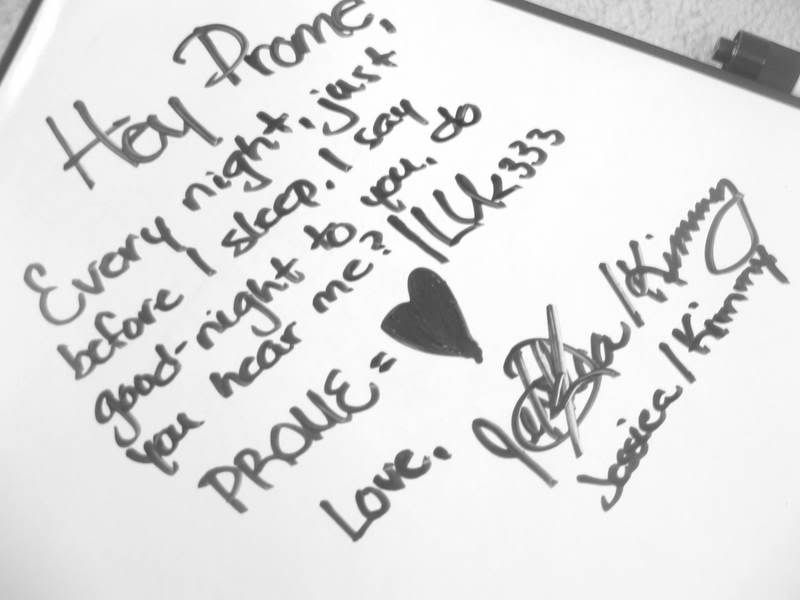 Hey Prome,
Every night, just
before I sleep. I say
good-night to you. do
you hear me? ILY<333
PROME = ♥
Love, Jessica/Kimmy
Jessica/Kimmy